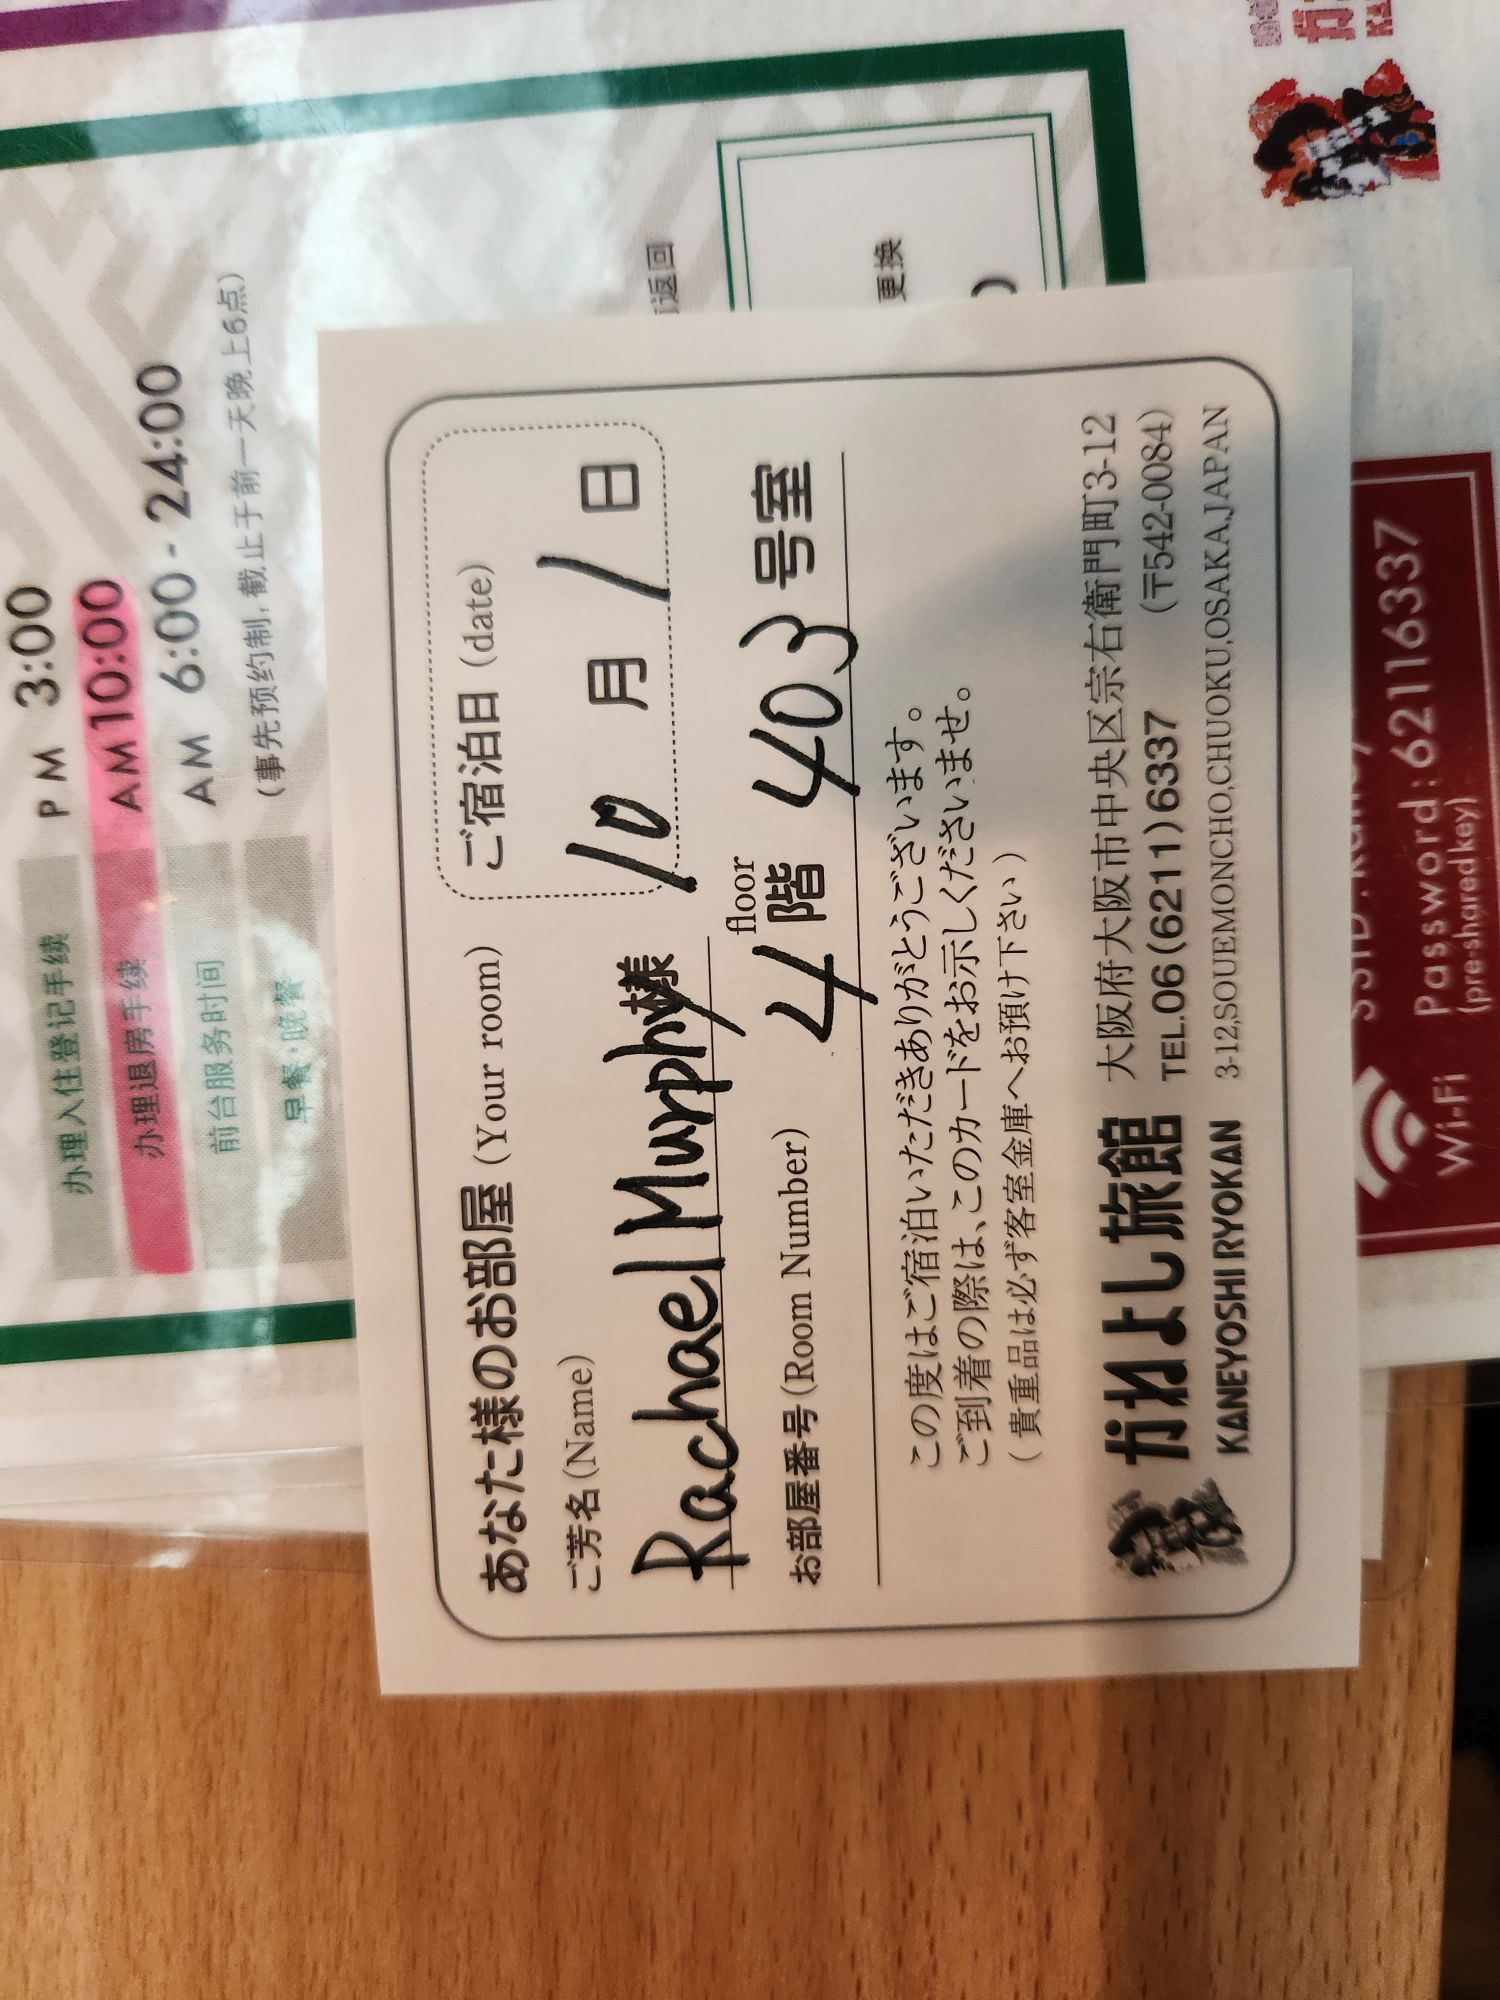 PM 3:00
办理入住登记手续
AM 10:00
办理退房手续
AM 6:00 - 24:00
前台服务时间
(事先预约制,截止于前一天晚上6点)
早餐・晚餐
返回
更换
あなた様のお部屋(Your room)
ご宿泊日(date)
10月1日
ご芳名(Name)
Rachael Murphy様
お部屋番号(Room Number)
floor
4階 403号室
この度はご宿泊いただきありがとうございます。
ご到着の際は、このカードをお示しくださいませ。
(貴重品は必ず客室金庫へお預け下さい)
かねよし旅館
KANEYOSHI RYOKAN
大阪府大阪市中央区宗右衛門町3-12
TEL.06(6211)6337 (〒542-0084)
3-12,SOUEMONCHO,CHUOKU,OSAKA,JAPAN
Wi-Fi
Password:62116337
(pre-sharedkey)